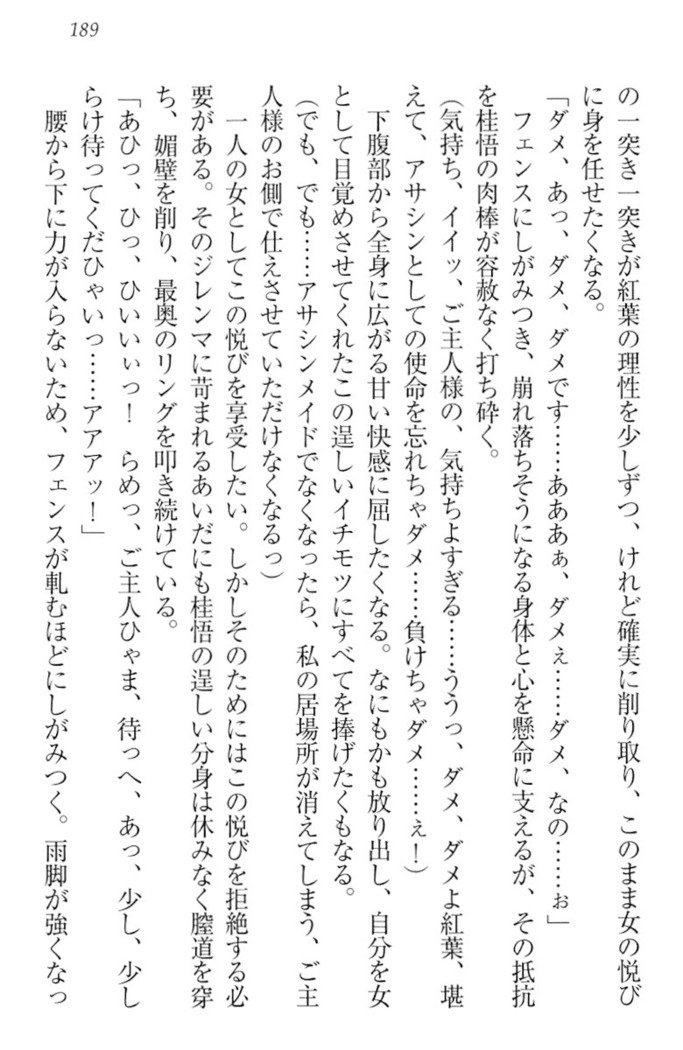 189
の一突き一突きが紅葉の理性を少しずつ、けれど確実に削り取り、このまま女の悦び
に身を任せたくなる。
「ダメ、あっ、ダメ、ダメです……あああぁ、ダメぇ……ダメ、なの……ぉ」
フェンスにしがみつき、崩れ落ちそうになる身体と心を懸命に支えるが、その抵抗
を桂悟の肉棒が容赦なく打ち砕く。
(気持ち、イイッ、ご主人様の、気持ちよすぎる……ううっ、ダメ、ダメよ紅葉、堪
えて、アサシンとしての使命を忘れちゃダメ……負けちゃダメ……ぇ！)
下腹部から全身に広がる甘い快感に屈したくなる。なにもかも放り出し、自分を女
として目覚めさせてくれたこの逞しいイチモツにすべてを捧げたくもなる。
(でも、でも……アサシンメイドでなくなったら、私の居場所が消えてしまう、ご主
人様のお側で仕えさせていただけなくなるっ)
一人の女としてこの悦びを享受したい。しかしそのためにはこの悦びを拒絶する必
要がある。そのジレンマに苛まれるあいだにも桂悟の逞しい分身は休みなく膣道を穿
ち、媚壁を削り、最奥のリングを叩き続けている。
「あひっ、ひっ、ひいいぃっ！　らめっ、ご主人ひゃま、待っへ、あっ、少し、少し
らけ待ってくだひゃいっ……アアアッ！」
腰から下に力が入らないため、フェンスが軋むほどにしがみつく。雨脚が強くなっ